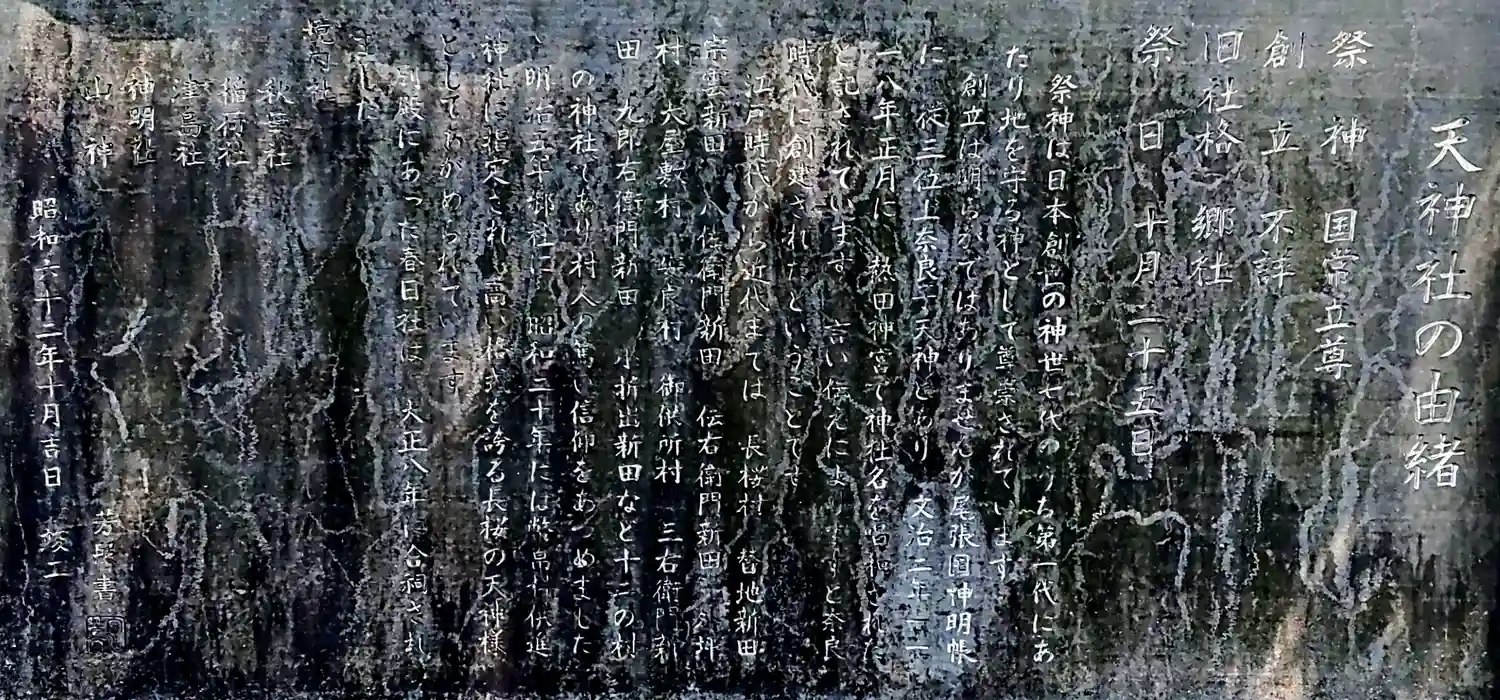 天神社の由緒
祭神 国常立尊
創立 不詳
旧社格 郷社
祭日 十月二十五日
祭神は日本創世の神世七代のうち第一代にあ
たり地を守る神として尊崇されています
創立は明らかではありませんが尾張国神明帳
に 従三位上奈良子天神とあり 文治二年一一
一八年正月に 熱田神宮で神社名を唱和された
と記されています 言い伝えによりますと奈良
時代に創建されたということです
江戸時代から近代までは 長桜村 替地新田
宗雲新田 八左衛門新田 伝右衛門新田
村 大屋敷村 御供所村 三右衛門新
田 九郎右衛門新田 小折出新田など十二の村
の神社であり村人の篤い信仰をあつめました
明治五年郷社に 昭和二十年には幣帛料供進
神社に指定され 高い格式を誇る長桜の天神様
としてあがめられています
別殿にあった春日社は 大正八年に合祠され
ました
境内社
秋葉社
稲荷社
津島社
神明社
山神
昭和六十二年十月吉日 竣工
書